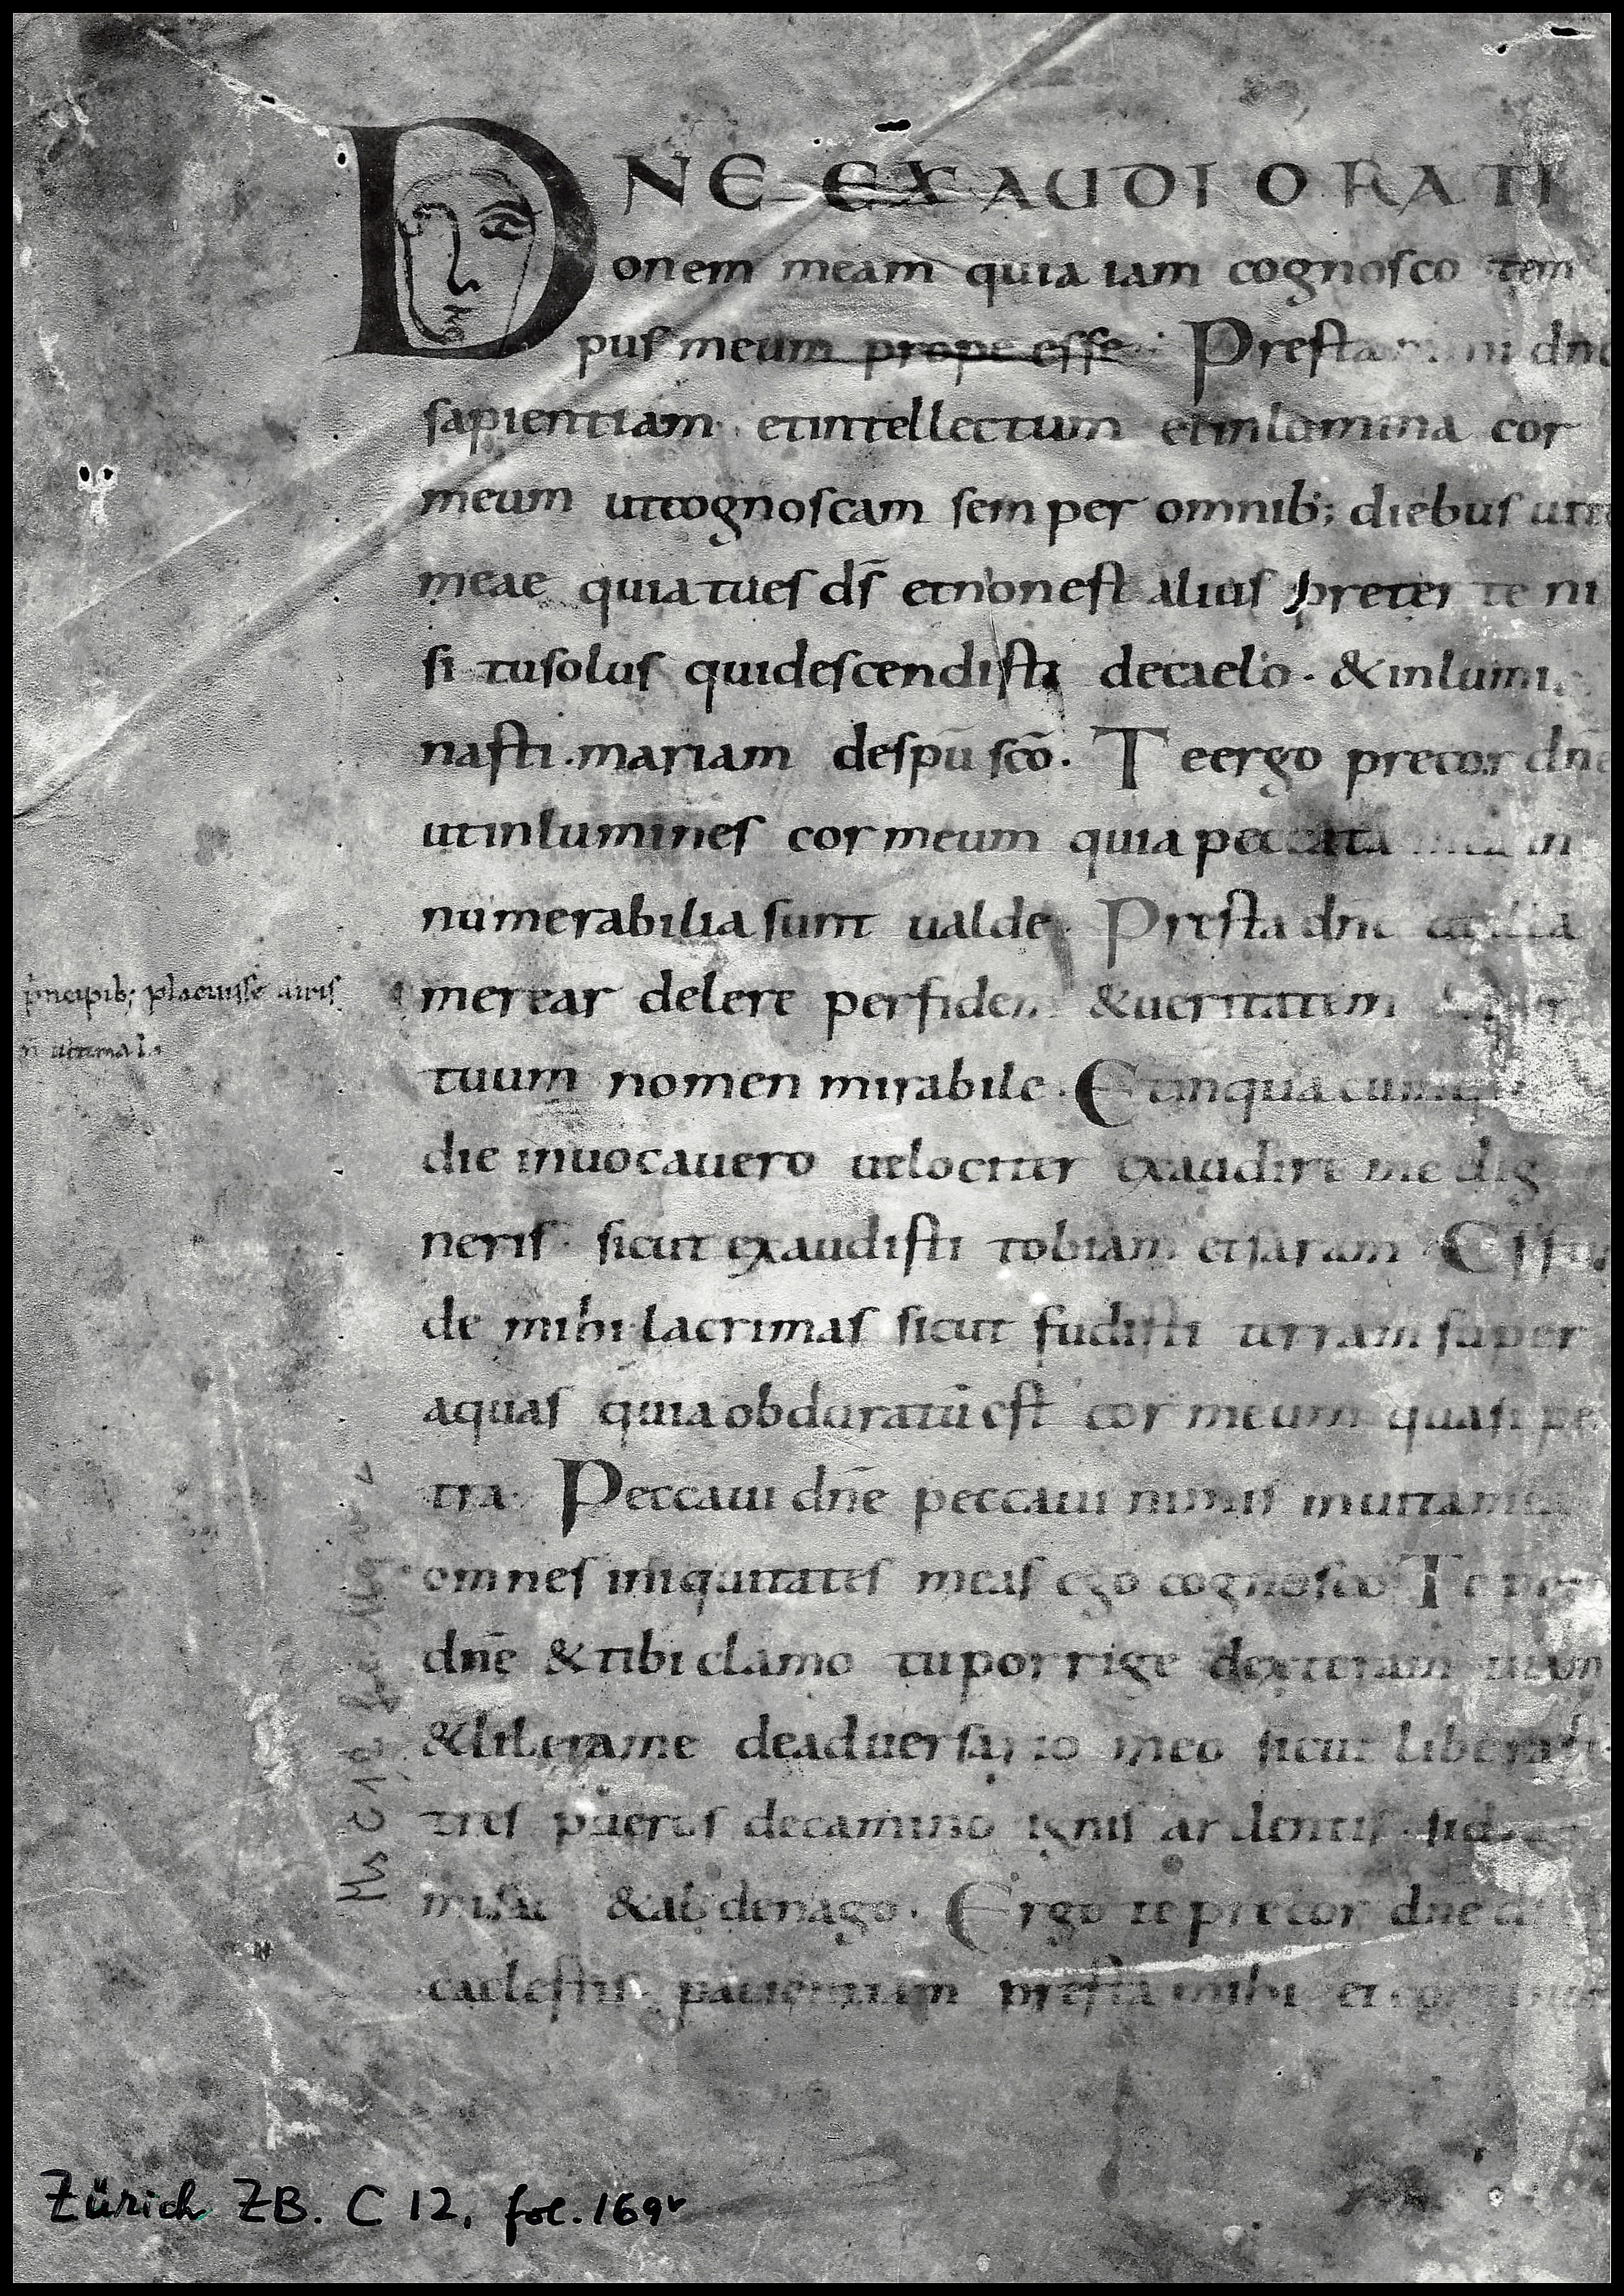 DNE EXAUDI ORATI
onem meam quia iam cognosco tem
pus meum prope esse. Presta mi dne
sapientiam etintellectum etinlumina cor
meum utcognoscam semper omnib; diebus
meae quiatues ds̄ etnonest alius preter te ni
si tusolus quidescendisti decaelo. & inlumi
nasti. mariam despū scō. Teergo precor dne
utinlumines cor meum quia peccata in
numerabilia sunt ualde. Presta dne
merear delere perfidem &ueritatem
tuum nomen mirabile. Etinquacumq
die inuocauero uelociter exaudire me dig
neris. sicut exaudisti tobiam etsaram Effun
de mihi lacrimas sicut fudisti terram super
aquas quiaobduratū est cor meum quasi pe
tra. Peccaui dnē peccaui nimis
omnes iniquitates meas ego cognosco Te
dnē &tibi clamo tu porrige dexteram tuam
&liberame deaduersario meo sicut liberasti
tres pueros decamino ignis ardentis.
misac &abdenago. Ergo te precor dne
caelestis mihi
principib; placuisse uiris
Zürich ZB. C 12, fol. 169v